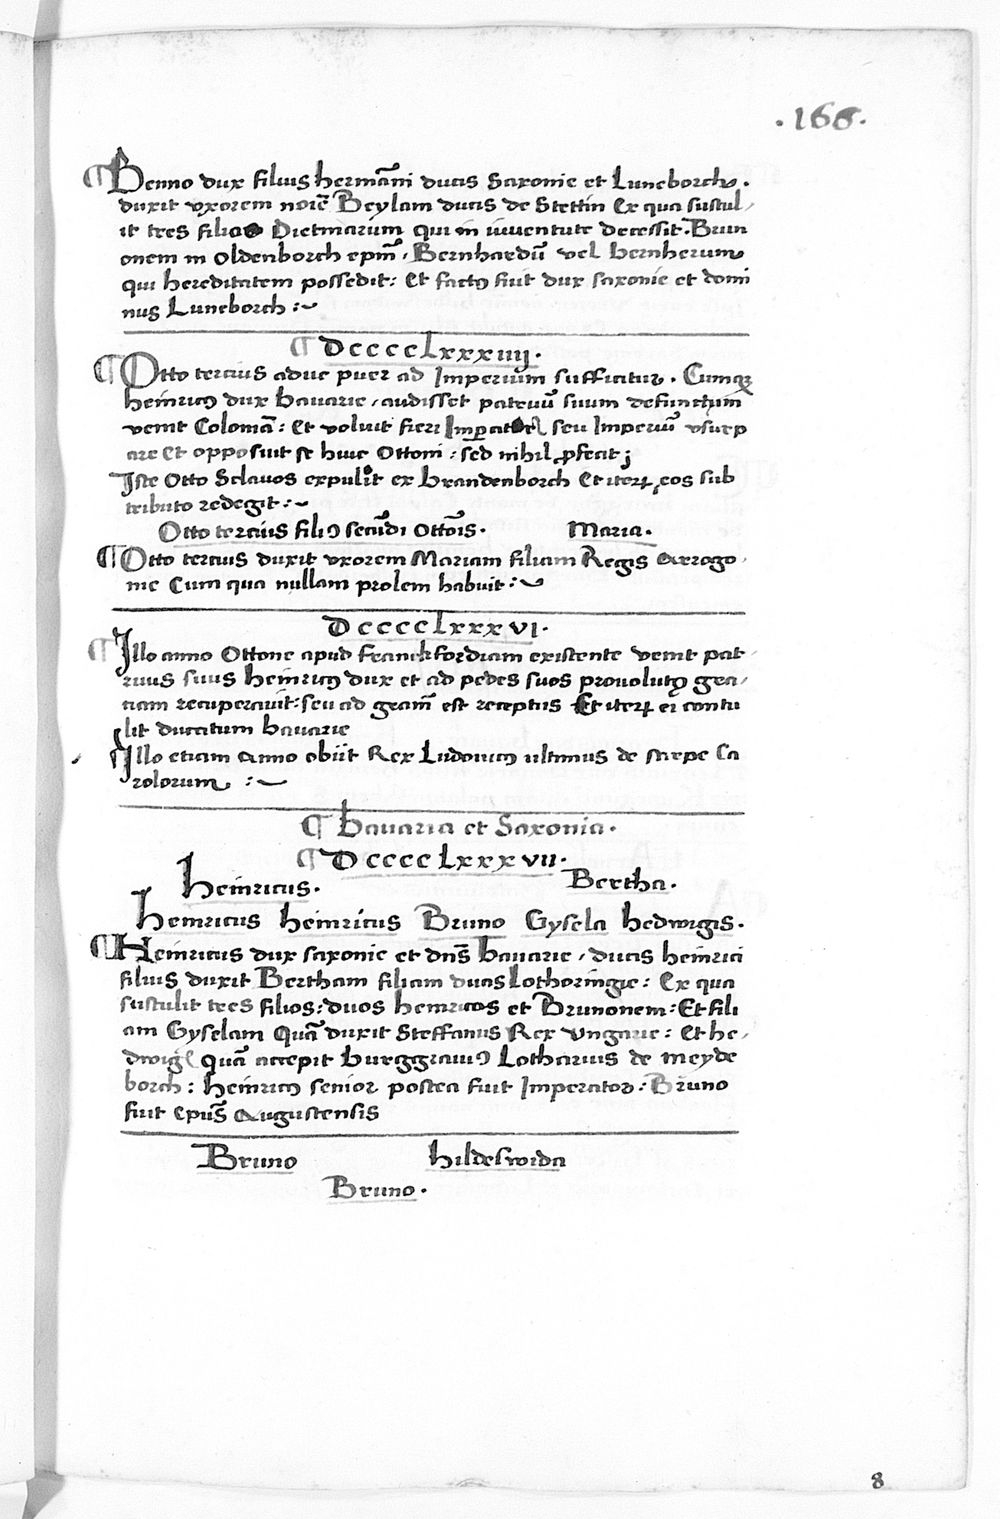 .166.
¶ Benno dux filius hermāni ducis Saxonie et Luneborch.
duxit vxorem noīe Beylam ducis de Stettin Ex qua sustul-
it tres filios Dietmarum qui in iuuentute decessit. Brun
onem in Oldenborch epm̄. Bernhardū vel bernherum
qui hereditatem possedit: Et factꝰ fuit dux saxonie et domi
nus Luneborch :~
¶ DccccLxxxiiij.
¶ Otto tercius aduc puer ad Imperium sufficitur. Cumqꝫ
heinricꝰ dux bauarie, audisset patruū suum defunctum
venit Coloniā: Et voluit fieri Imꝑator seu Imperiū vsurp
are Et opposuit se huic Ottoni: sed nihil ꝓfecit;
Iste Otto Sclauos expulit ex brandenborch Et iteꝝ eos sub
tributo redegit :~
Otto tercius filiꝰ secūdi Ottōis. Maria.
¶ Otto tercius duxit vxorem Mariam filiam Regis Arrogo-
nie Cum qua nullam prolem habuit :~
DccccLxxxvi.
¶ Illo anno Ottone apud franckfordiam existente venit pat-
ruus suus heinricꝰ dux et ad pedes suos prouolutꝰ gra-
tiam recuperauit: seu ad grām̄ est receptus Et iteꝝ ei contu
lit ducatum bauarie
Illo etiam Anno obiit Rex Ludouicꝰ ultimus de stirpe Ca
rolorum :~
¶ bauaria et Saxonia.
¶ DccccLxxxvii.
heinricus. Bertha.
heinricus heinricus Bruno Gysela hedwigis.
¶ Heinricus dux saxonie et dn̄s bauarie, ducis heinrici
filius duxit Bertham filiam ducis Lothoringie: Ex qua
sustulit tres filios: duos heinricos et Brunonem: Et fili
am Gyselam Quā duxit Steffanus Rex vngarie: Et he-
dwigē quā accepit burggrauiꝰ Lotharius de meyde
borch: heinricꝰ senior postea fuit Imperator: Bruno
fuit Epūs Augustensis
Bruno hildeswida
Bruno.
8